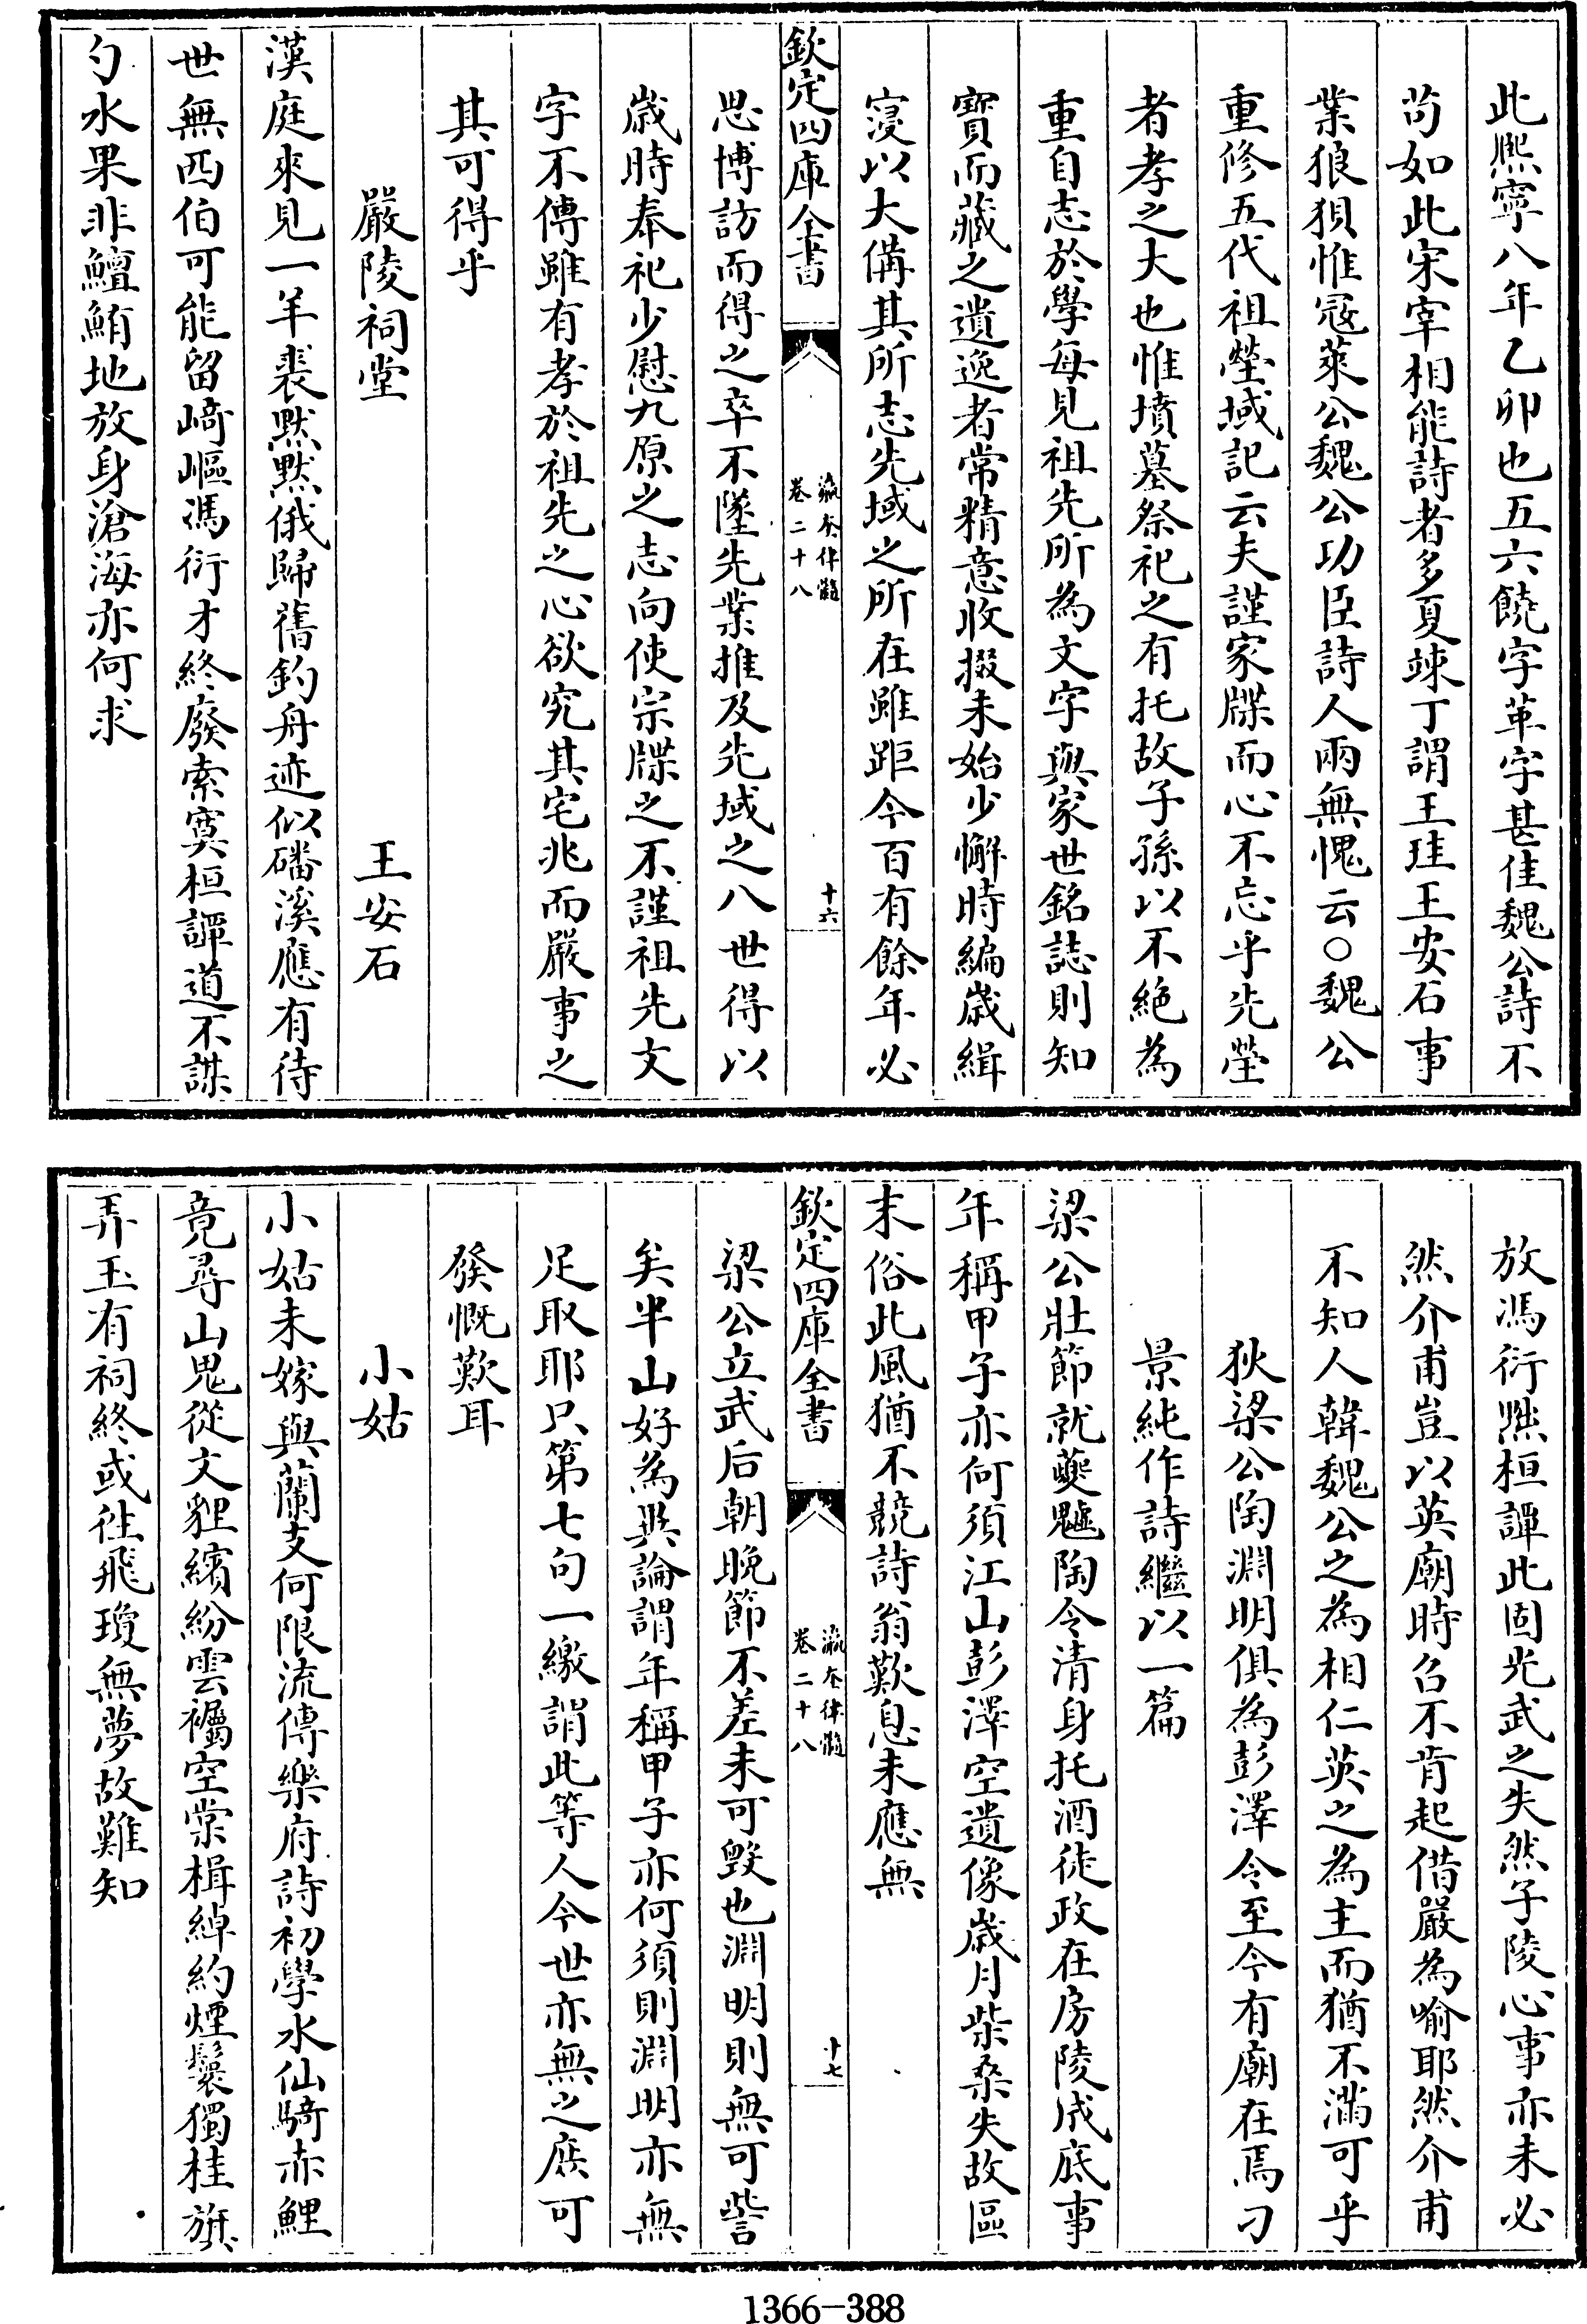 此熈寧八年乙卯也五六饒字革字甚佳魏公詩不
茍如此宋宰相能詩者多夏竦丁謂王珪王安石事
業狼狽惟冦萊公魏公功臣詩人兩無愧云○魏公
重修五代祖塋域記云夫謹家牒而心不忘乎先塋
者孝之大也惟墳墓祭祀之有托故子孫以不絶為
重自志於學每見祖先所為文字與家世銘誌則知
寳而藏之遺逸者常精意收掇未始少懈時編歲緝
寖以大備其所志先域之所在雖距今百有餘年必
欽定四庫全書
瀛奎律髓
卷二十八
十六
思博訪而得之卒不墜先業推及先域之八世得以
歲時奉祀少慰九原之志向使宗牒之不謹祖先文
字不傳雖有孝於祖先之心欲究其宅兆而嚴事之
其可得乎
嚴陵祠堂　王安石
漢庭來見一羊裘黙黙俄歸舊釣舟迹似磻溪應有待
世無西伯可能留崎嶇馮衍才終廢索寞桓譚道不謀
勺水果非鱣鮪地放身滄海亦何求
放馮衍黜桓譚此固光武之失然子陵心事亦未必
然介甫豈以英廟時召不肯起借嚴為喻耶然介甫
不知人韓魏公之為相仁英之為主而猶不滿可乎
狄梁公陶淵明俱為彭澤令至今有廟在焉刁
景純作詩繼以一篇
梁公壯節就夔魖陶令清身托酒徒政在房陵成底事
年稱甲子亦何須江山彭澤空遺像歲月柴桑失故區
末俗此風猶不競詩翁歎息未應無
欽定四庫全書
瀛奎律髓
卷二十八
十七
梁公立武后朝晚節不差未可毁也淵明則無可訾
矣半山好為異論謂年稱甲子亦何須則淵明亦無
足取耶只第七句一繳謂此等人今世亦無之庶可
發慨歎耳
小姑
小姑未嫁與蘭支何限流傳樂府詩初學水仙騎赤鯉
竟尋山鬼從文貍繽紛雲襡空棠楫綽約煙鬟獨桂旗
弄玉有祠終或往飛瓊無夢故難知
1366-388